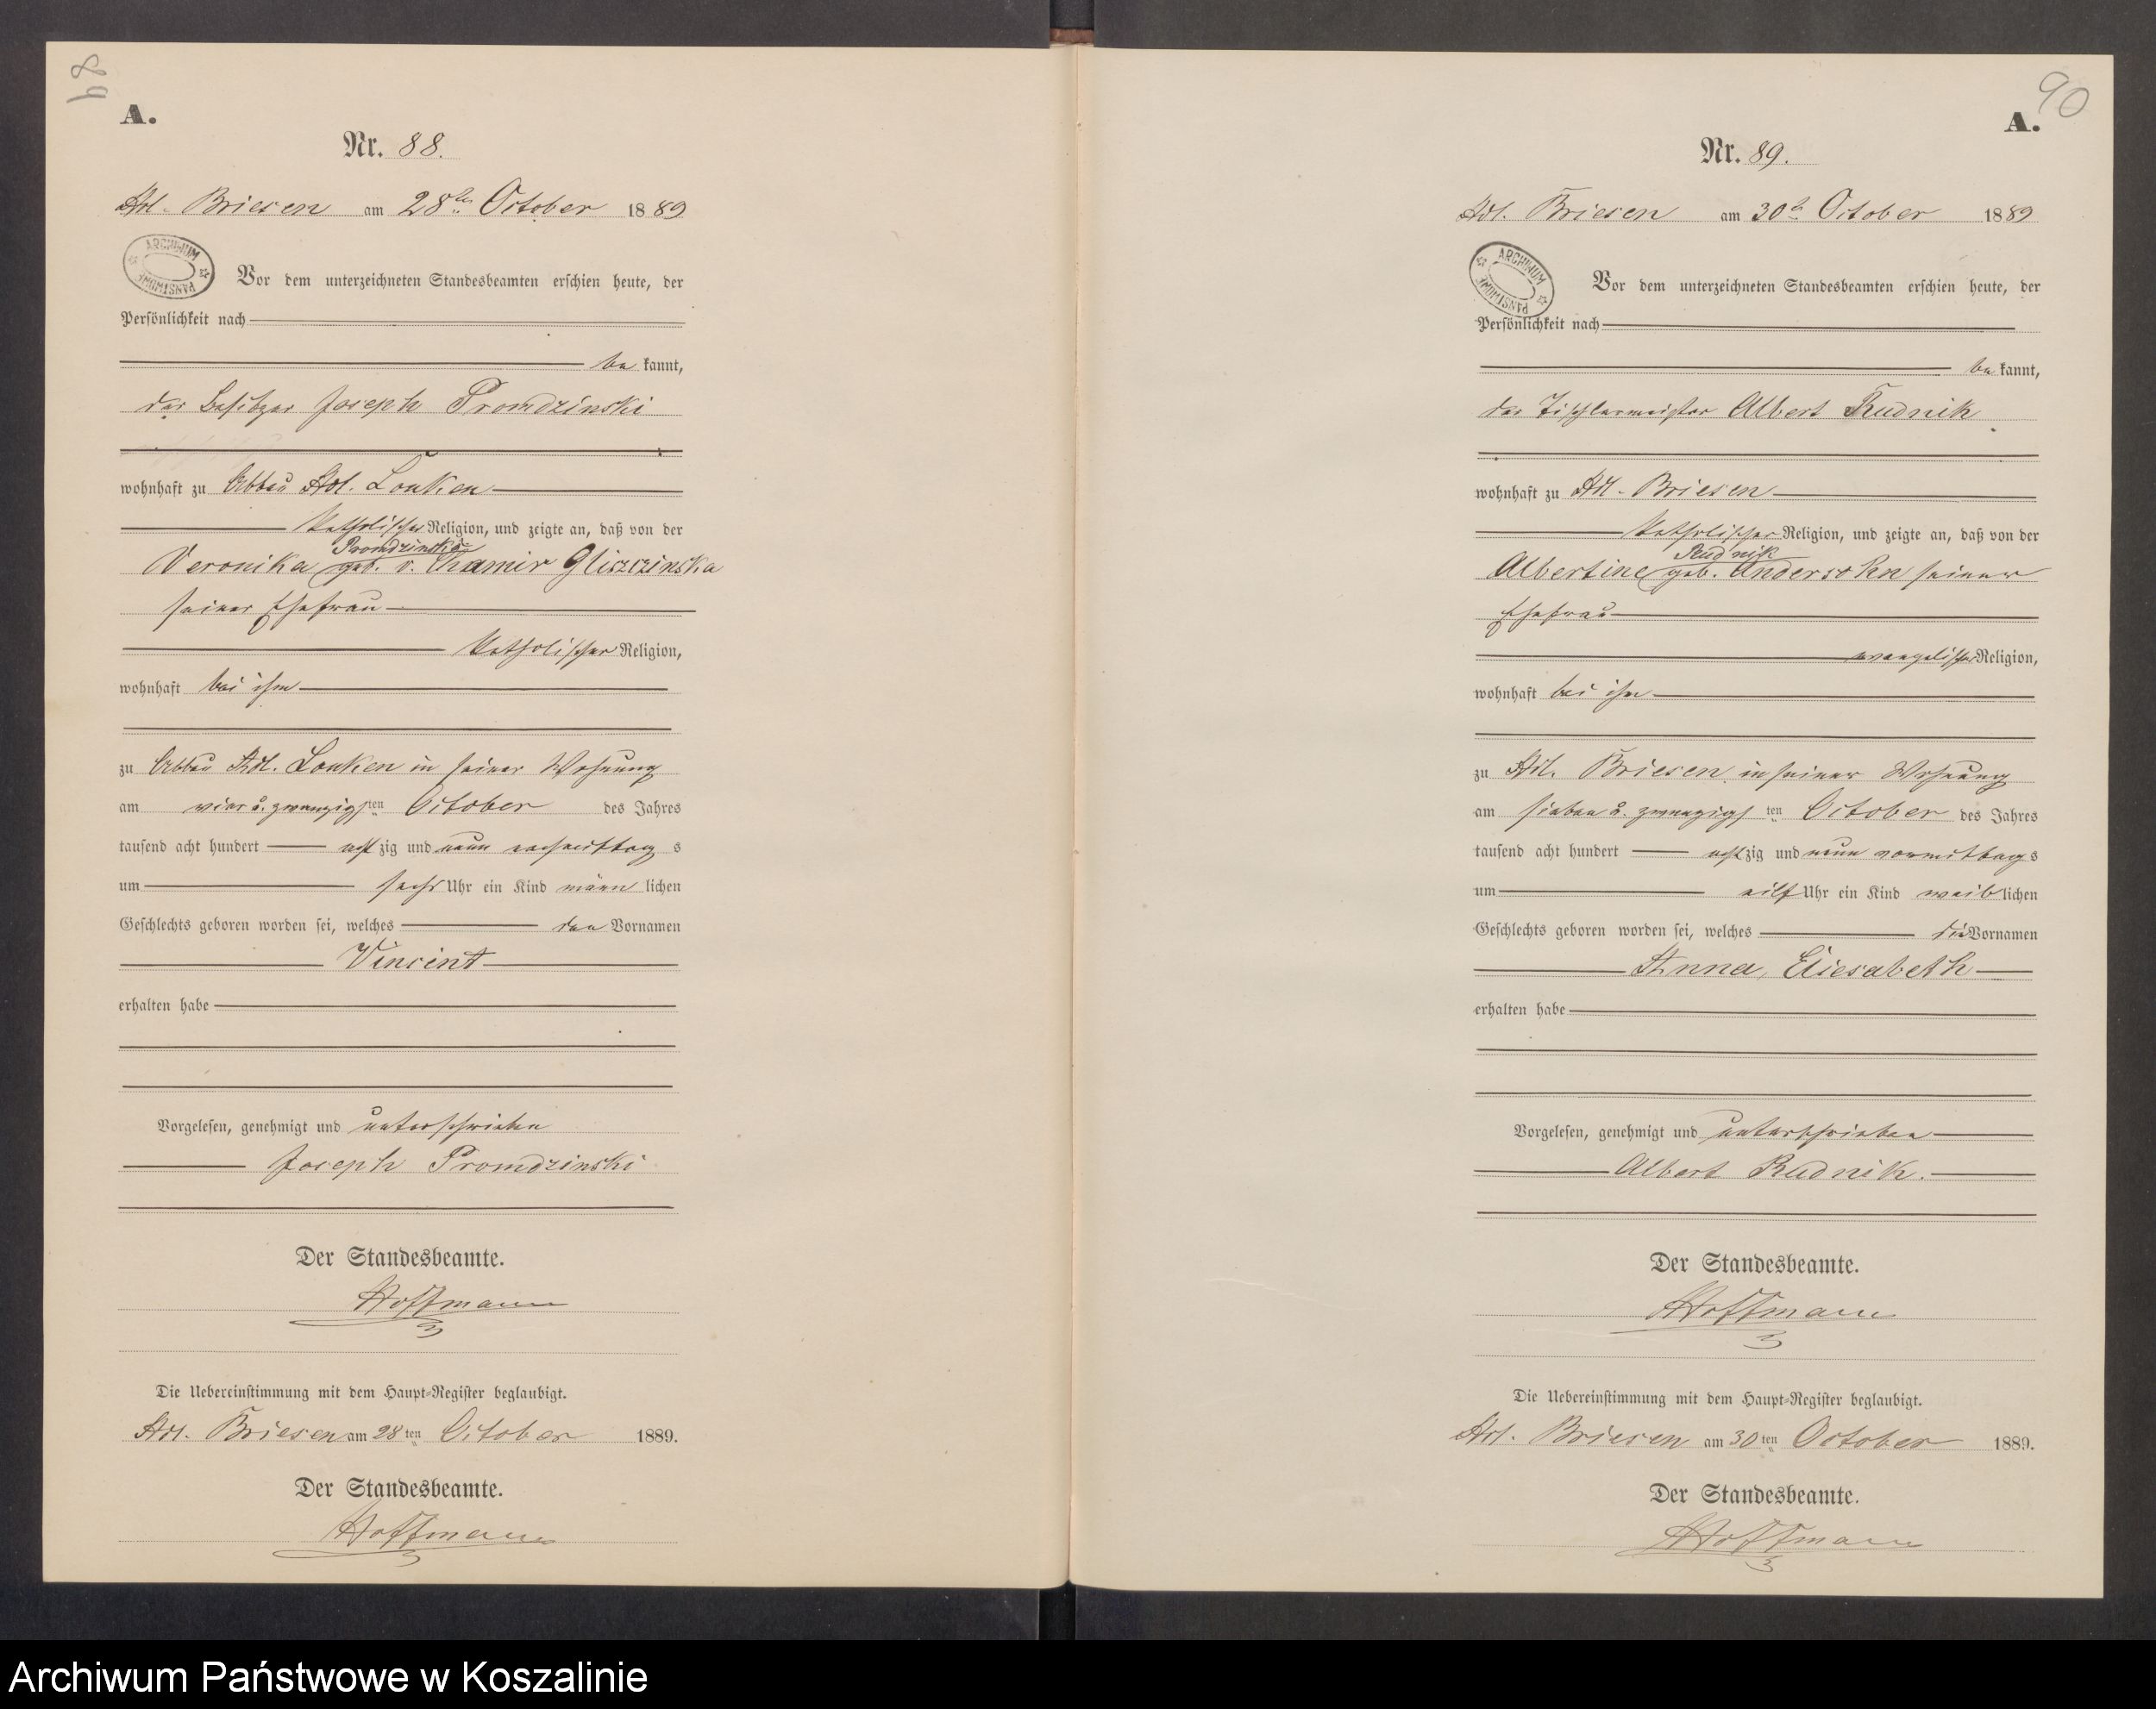 89
A.
Nr. 88.
Adl. Briesen am 28ten October 1889
ARCHIWUM PAŃSTWOWE
Vor dem unterzeichneten Standesbeamten erschien heute, der
Persönlichkeit nach
bekannt,
der Besitzer Joseph Promdzinski
wohnhaft zu Abbau Adl. Lonken
katholischer Religion, und zeigte an, daß von der
Promdzinska
Veronika geb. v. Chamir Gliszczinska
seiner Ehefrau
katholischer Religion,
wohnhaft bei ihm
zu Abbau Adl. Lonken in seiner Wohnung
am vier u. zwanzigsten October des Jahres
tausend acht hundert achtzig und neun nachmittags
um sechs Uhr ein Kind männlichen
Geschlechts geboren worden sei, welches den Vornamen
Vincent
erhalten habe
Vorgelesen, genehmigt und unterschrieben
Joseph Promdzinski
Der Standesbeamte.
Hoffmann
Die Uebereinstimmung mit dem Haupt-Register beglaubigt.
Adl. Briesen am 28ten October 1889.
Der Standesbeamte.
Hoffmann
90
A.
Nr. 89.
Adl. Briesen am 30t October 1889
ARCHIWUM PAŃSTWOWE
Vor dem unterzeichneten Standesbeamten erschien heute, der
Persönlichkeit nach
bekannt,
der Tischlermeister Albert Rudnik
wohnhaft zu Adl. Briesen
katholischer Religion, und zeigte an, daß von der
Rudnik
Albertine geb. Andersohn seiner
Ehefrau
evangelischer Religion,
wohnhaft bei ihm
zu Adl. Briesen in seiner Wohnung
am sieben u. zwanzigsten October des Jahres
tausend acht hundert achtzig und neun vormittags
um eilf Uhr ein Kind weiblichen
Geschlechts geboren worden sei, welches die Vornamen
Anna, Eliesabeth
erhalten habe
Vorgelesen, genehmigt und unterschrieben
Albert Rudnik.
Der Standesbeamte.
Hoffmann
Die Uebereinstimmung mit dem Haupt-Register beglaubigt.
Adl. Briesen am 30ten October 1889.
Der Standesbeamte.
Hoffmann
Archiwum Państwowe w Koszalinie